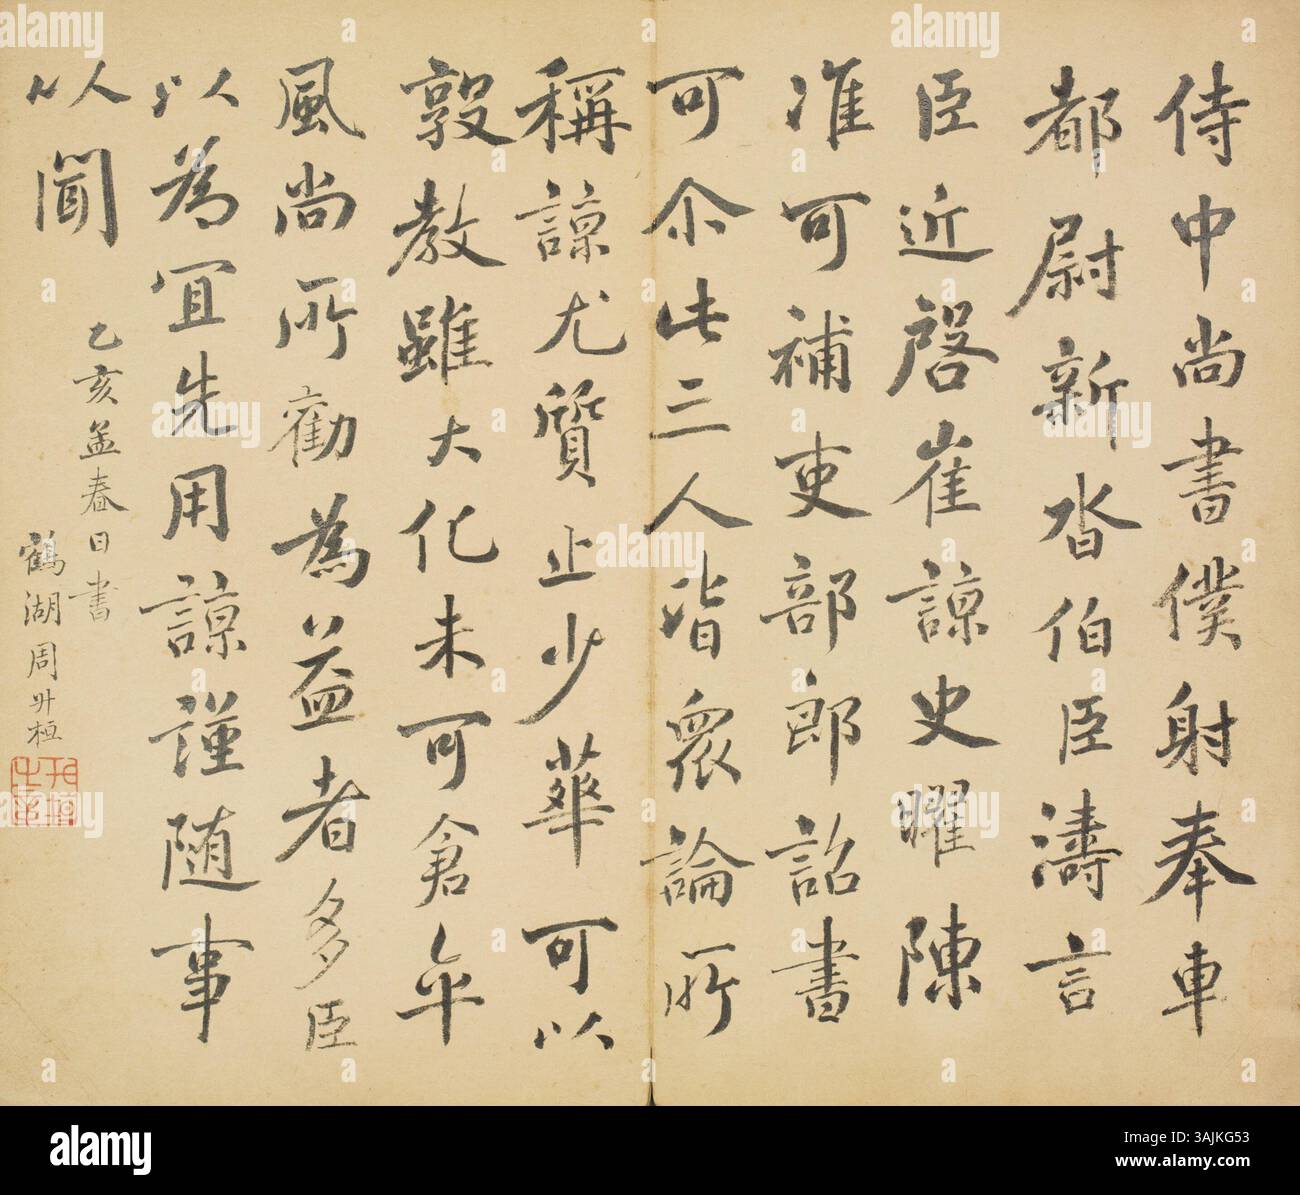 侍中尚書僕射奉車
都尉新沓伯臣濤言
臣近啓崔諒史曜陳
准可補吏部郎詔書
可尒此三人皆衆論所
稱諒尤質止少華可以
敦教雖大化未可倉卒
風尚所勸為益者多臣
以為宜先用諒謹随事
以聞
乙亥孟春日書
鶴湖周升桓
alamy
Image ID: 3AJKG53
www.alamy.com